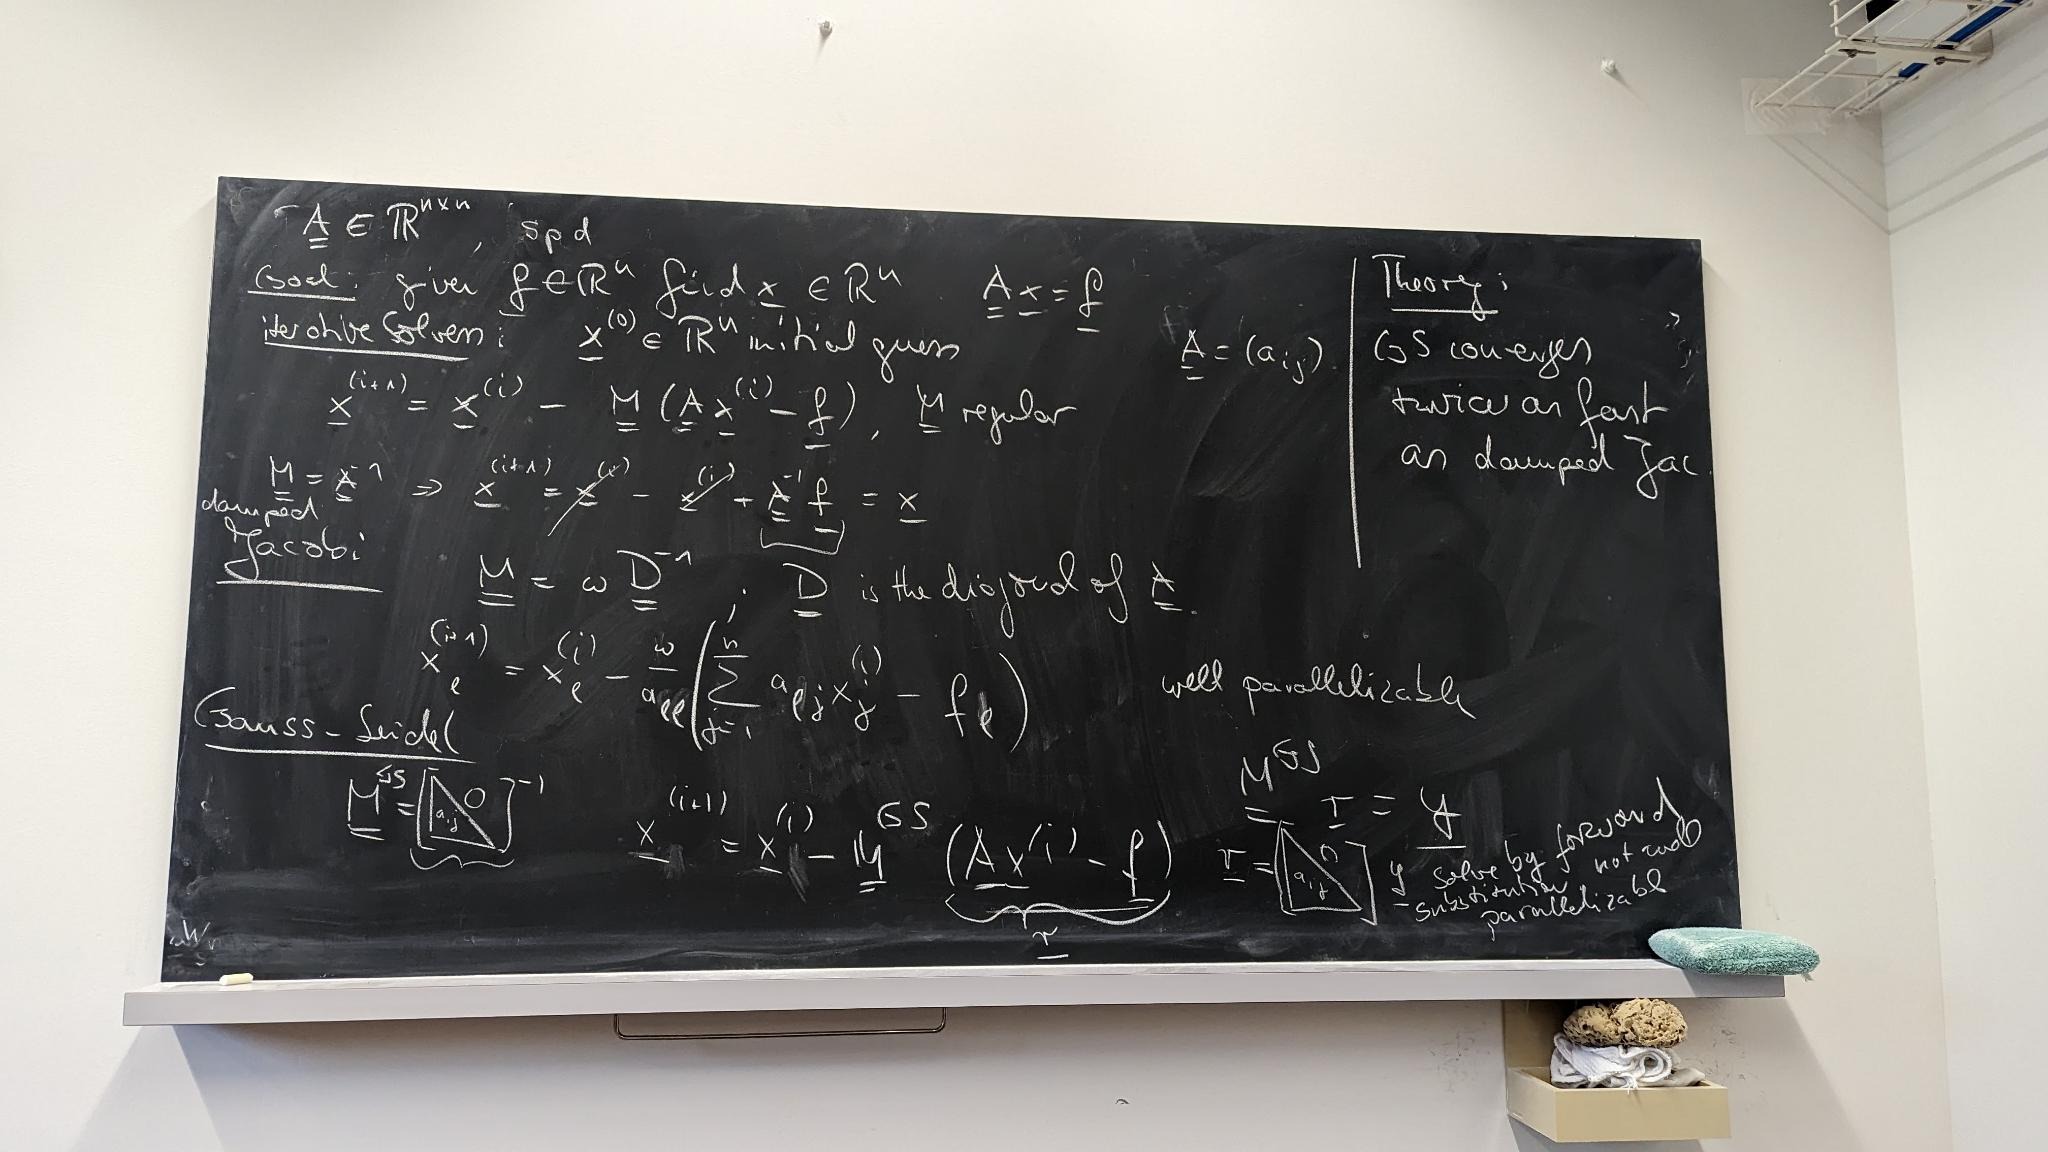 A ∈ ℝⁿˣⁿ, spd
Goal: given f ∈ ℝⁿ find x ∈ ℝⁿ A x = f
iterative Solvers: x⁽⁰⁾ ∈ ℝⁿ initial guess
A = (aᵢⱼ)
x⁽ⁱ⁺¹⁾ = x⁽ⁱ⁾ − M (A x⁽ⁱ⁾ − f), M regular
M = A⁻¹ ⇒ x⁽ⁱ⁺¹⁾ = x⁽ⁱ⁾ − x⁽ⁱ⁾ + A⁻¹ f = x
damped
Jacobi
M = ω D⁻¹, D is the diagonal of A.
x_ℓ⁽ⁱ⁺¹⁾ = x_ℓ⁽ⁱ⁾ − ω/a_ℓℓ (∑_{j=1}^{n} a_ℓj x_j⁽ⁱ⁾ − f_ℓ)
well parallelizable
Gauss-Seidel
M^GS = [aᵢⱼ 0]⁻¹
x⁽ⁱ⁺¹⁾ = x⁽ⁱ⁾ − M^GS (A x⁽ⁱ⁾ − f)
r
M^GS r = y
r = [aᵢⱼ 0] y solve by forward
substitution not well
parallelizable
Theory:
GS converges
twice as fast
as damped Jac.